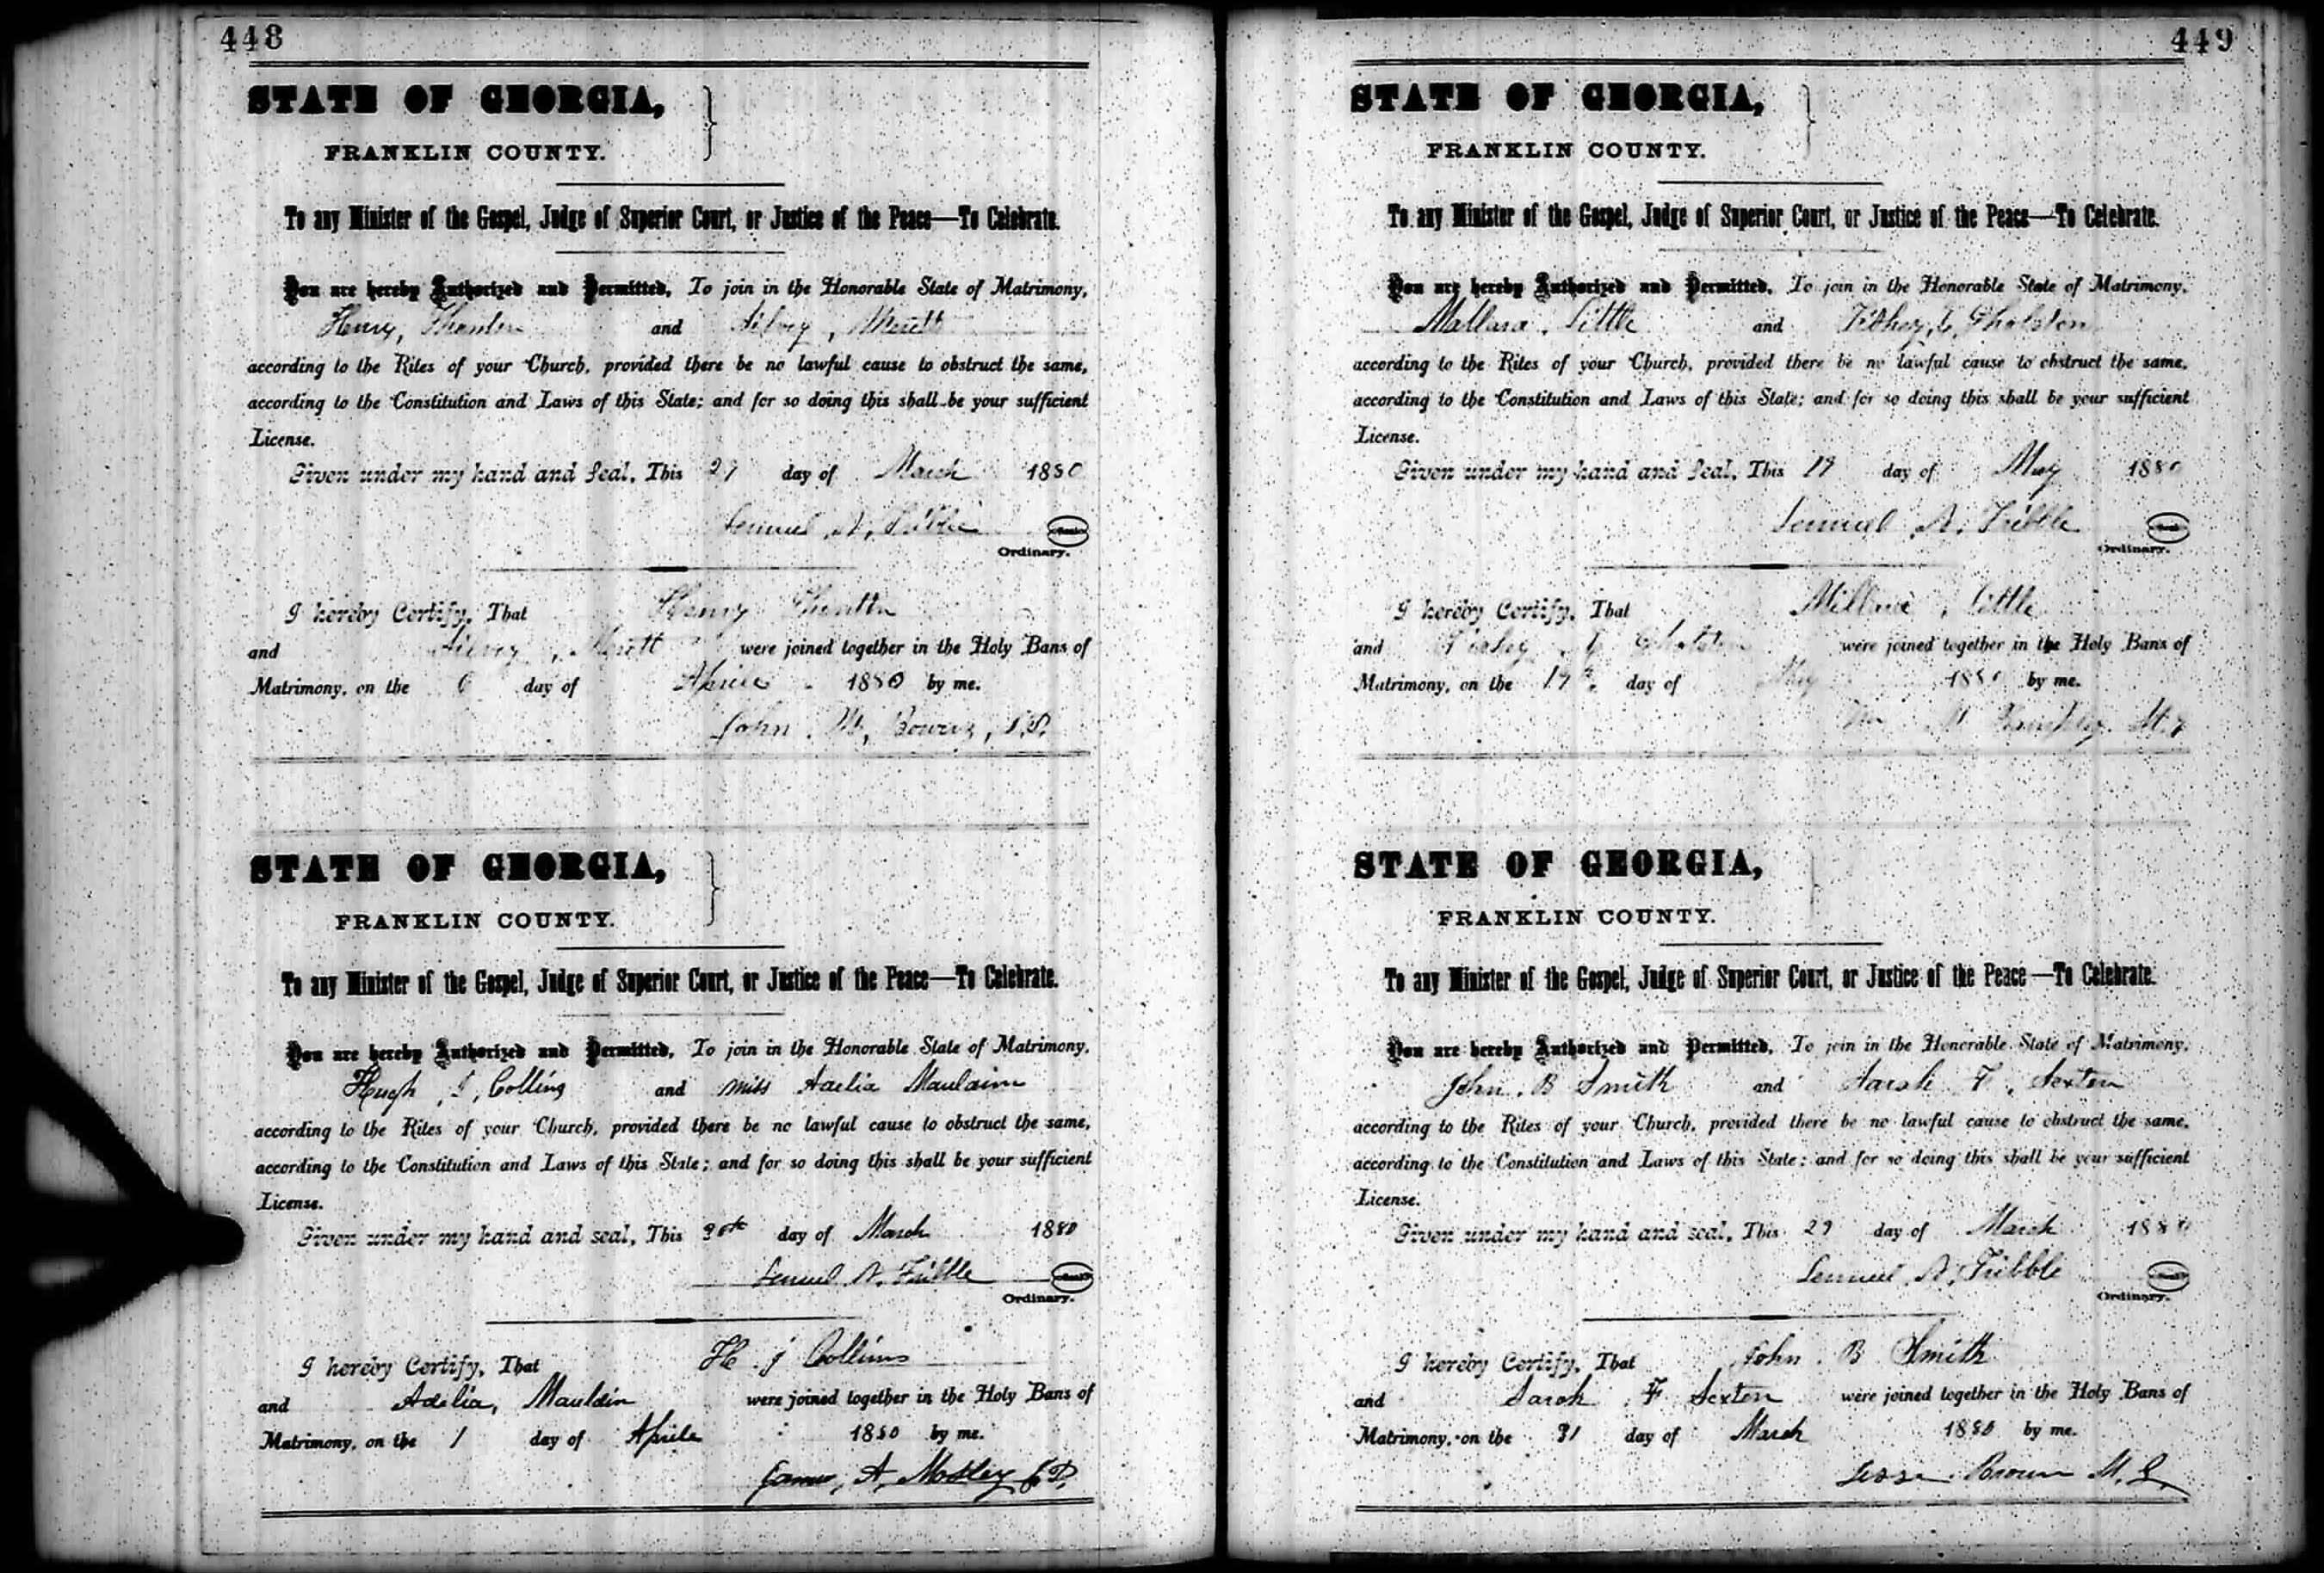 448
STATE OF GEORGIA,
FRANKLIN COUNTY.
To any Minister of the Gospel, Judge of Superior Court, or Justice of the Peace—To Celebrate.
You are hereby Authorized and Permitted, To join in the Honorable State of Matrimony,
Henry, and Silvey,
according to the Rites of your Church, provided there be no lawful cause to obstruct the same,
according to the Constitution and Laws of this State; and for so doing this shall be your sufficient
License.
Given under my hand and Seal, This day of March 1880
Lemuel N. Tribble
Ordinary.
I hereby Certify, That Henry
and Silvey, were joined together in the Holy Bans of
Matrimony, on the 6 day of Aprile 1880 by me.
John. Bowers,
STATE OF GEORGIA,
FRANKLIN COUNTY.
To any Minister of the Gospel, Judge of Superior Court, or Justice of the Peace—To Celebrate.
You are hereby Authorized and Permitted, To join in the Honorable State of Matrimony,
Hugh, J, Collins and miss Adelia
according to the Rites of your Church, provided there be no lawful cause to obstruct the same,
according to the Constitution and Laws of this State; and for so doing this shall be your sufficient
License.
Given under my hand and seal, This 30th day of March 1880
Lemuel N. Tribble
Ordinary.
I hereby Certify, That H. J Collins
and Adelia, Mauldin were joined together in the Holy Bans of
Matrimony, on the 1 day of Aprile 1880 by me.
James, A, Mosley
449
STATE OF GEORGIA,
FRANKLIN COUNTY.
To any Minister of the Gospel, Judge of Superior Court, or Justice of the Peace—To Celebrate.
You are hereby Authorized and Permitted, To join in the Honorable State of Matrimony,
Little and Gholston
according to the Rites of your Church, provided there be no lawful cause to obstruct the same,
according to the Constitution and Laws of this State; and for so doing this shall be your sufficient
License.
Given under my hand and Seal, This day of May 1880
Lemuel N. Tribble
Ordinary.
I hereby Certify, That Little
and Gholston were joined together in the Holy Bans of
Matrimony, on the day of May 1880 by me.
STATE OF GEORGIA,
FRANKLIN COUNTY.
To any Minister of the Gospel, Judge of Superior Court, or Justice of the Peace—To Celebrate.
You are hereby Authorized and Permitted, To join in the Honorable State of Matrimony,
John. B Smith and Sarah F, Sexton
according to the Rites of your Church, provided there be no lawful cause to obstruct the same,
according to the Constitution and Laws of this State; and for so doing this shall be your sufficient
License.
Given under my hand and seal, This 29 day of March 1880
Lemuel N. Tribble
Ordinary.
I hereby Certify, That John. B Smith
and Sarah F Sexton were joined together in the Holy Bans of
Matrimony, on the 31 day of March 1880 by me.
Jesse Brown M. G.